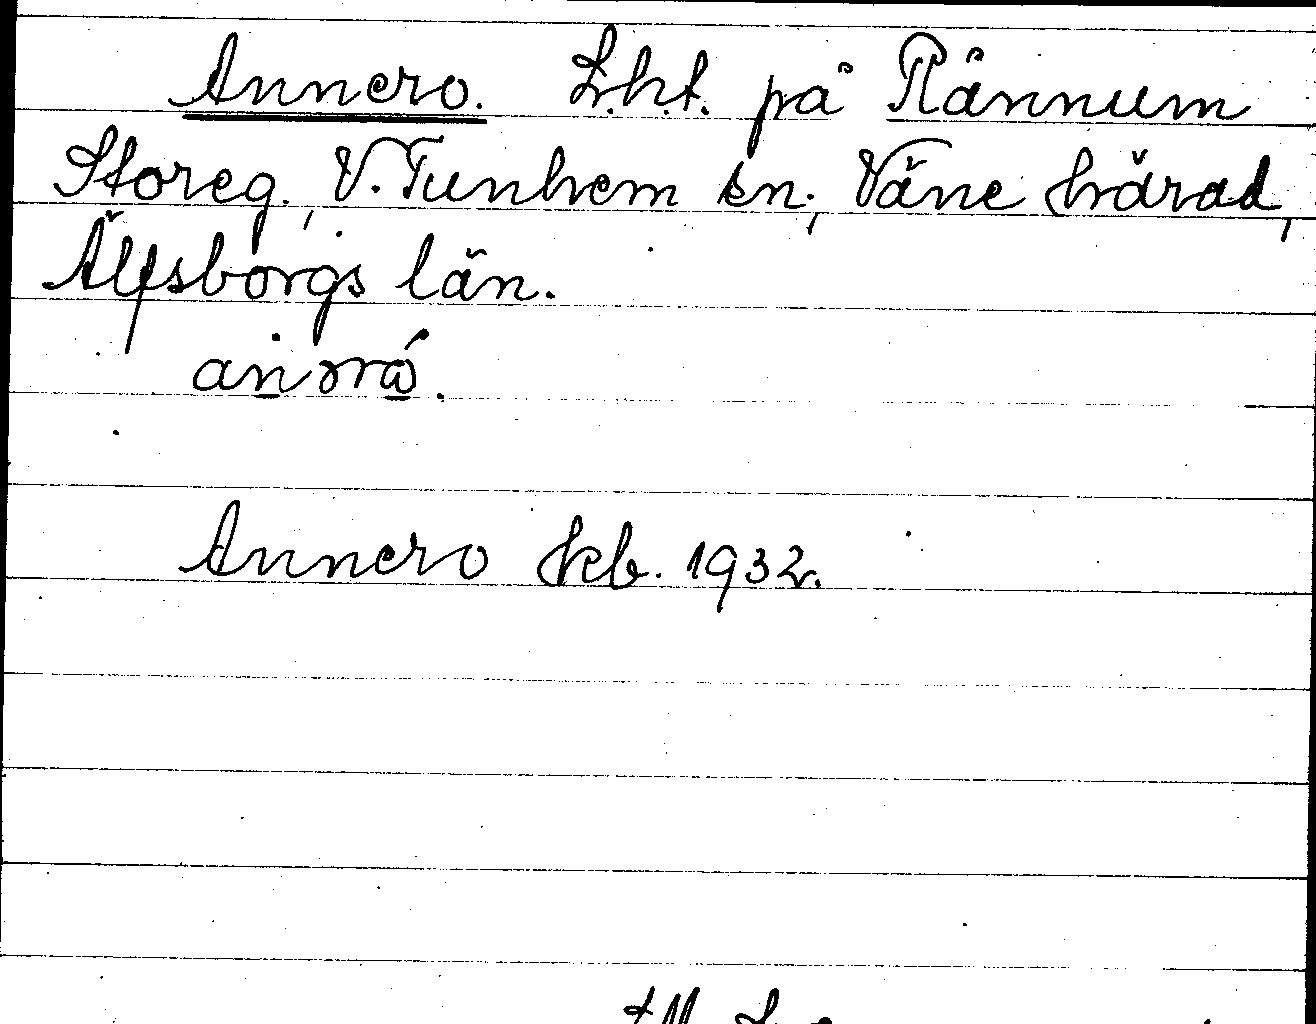 Annero. L.h.t. på Rännum
Storeg., V. Tunhem sn., Väne härad,
Älfsborgs län.
Annero kb. 1932.